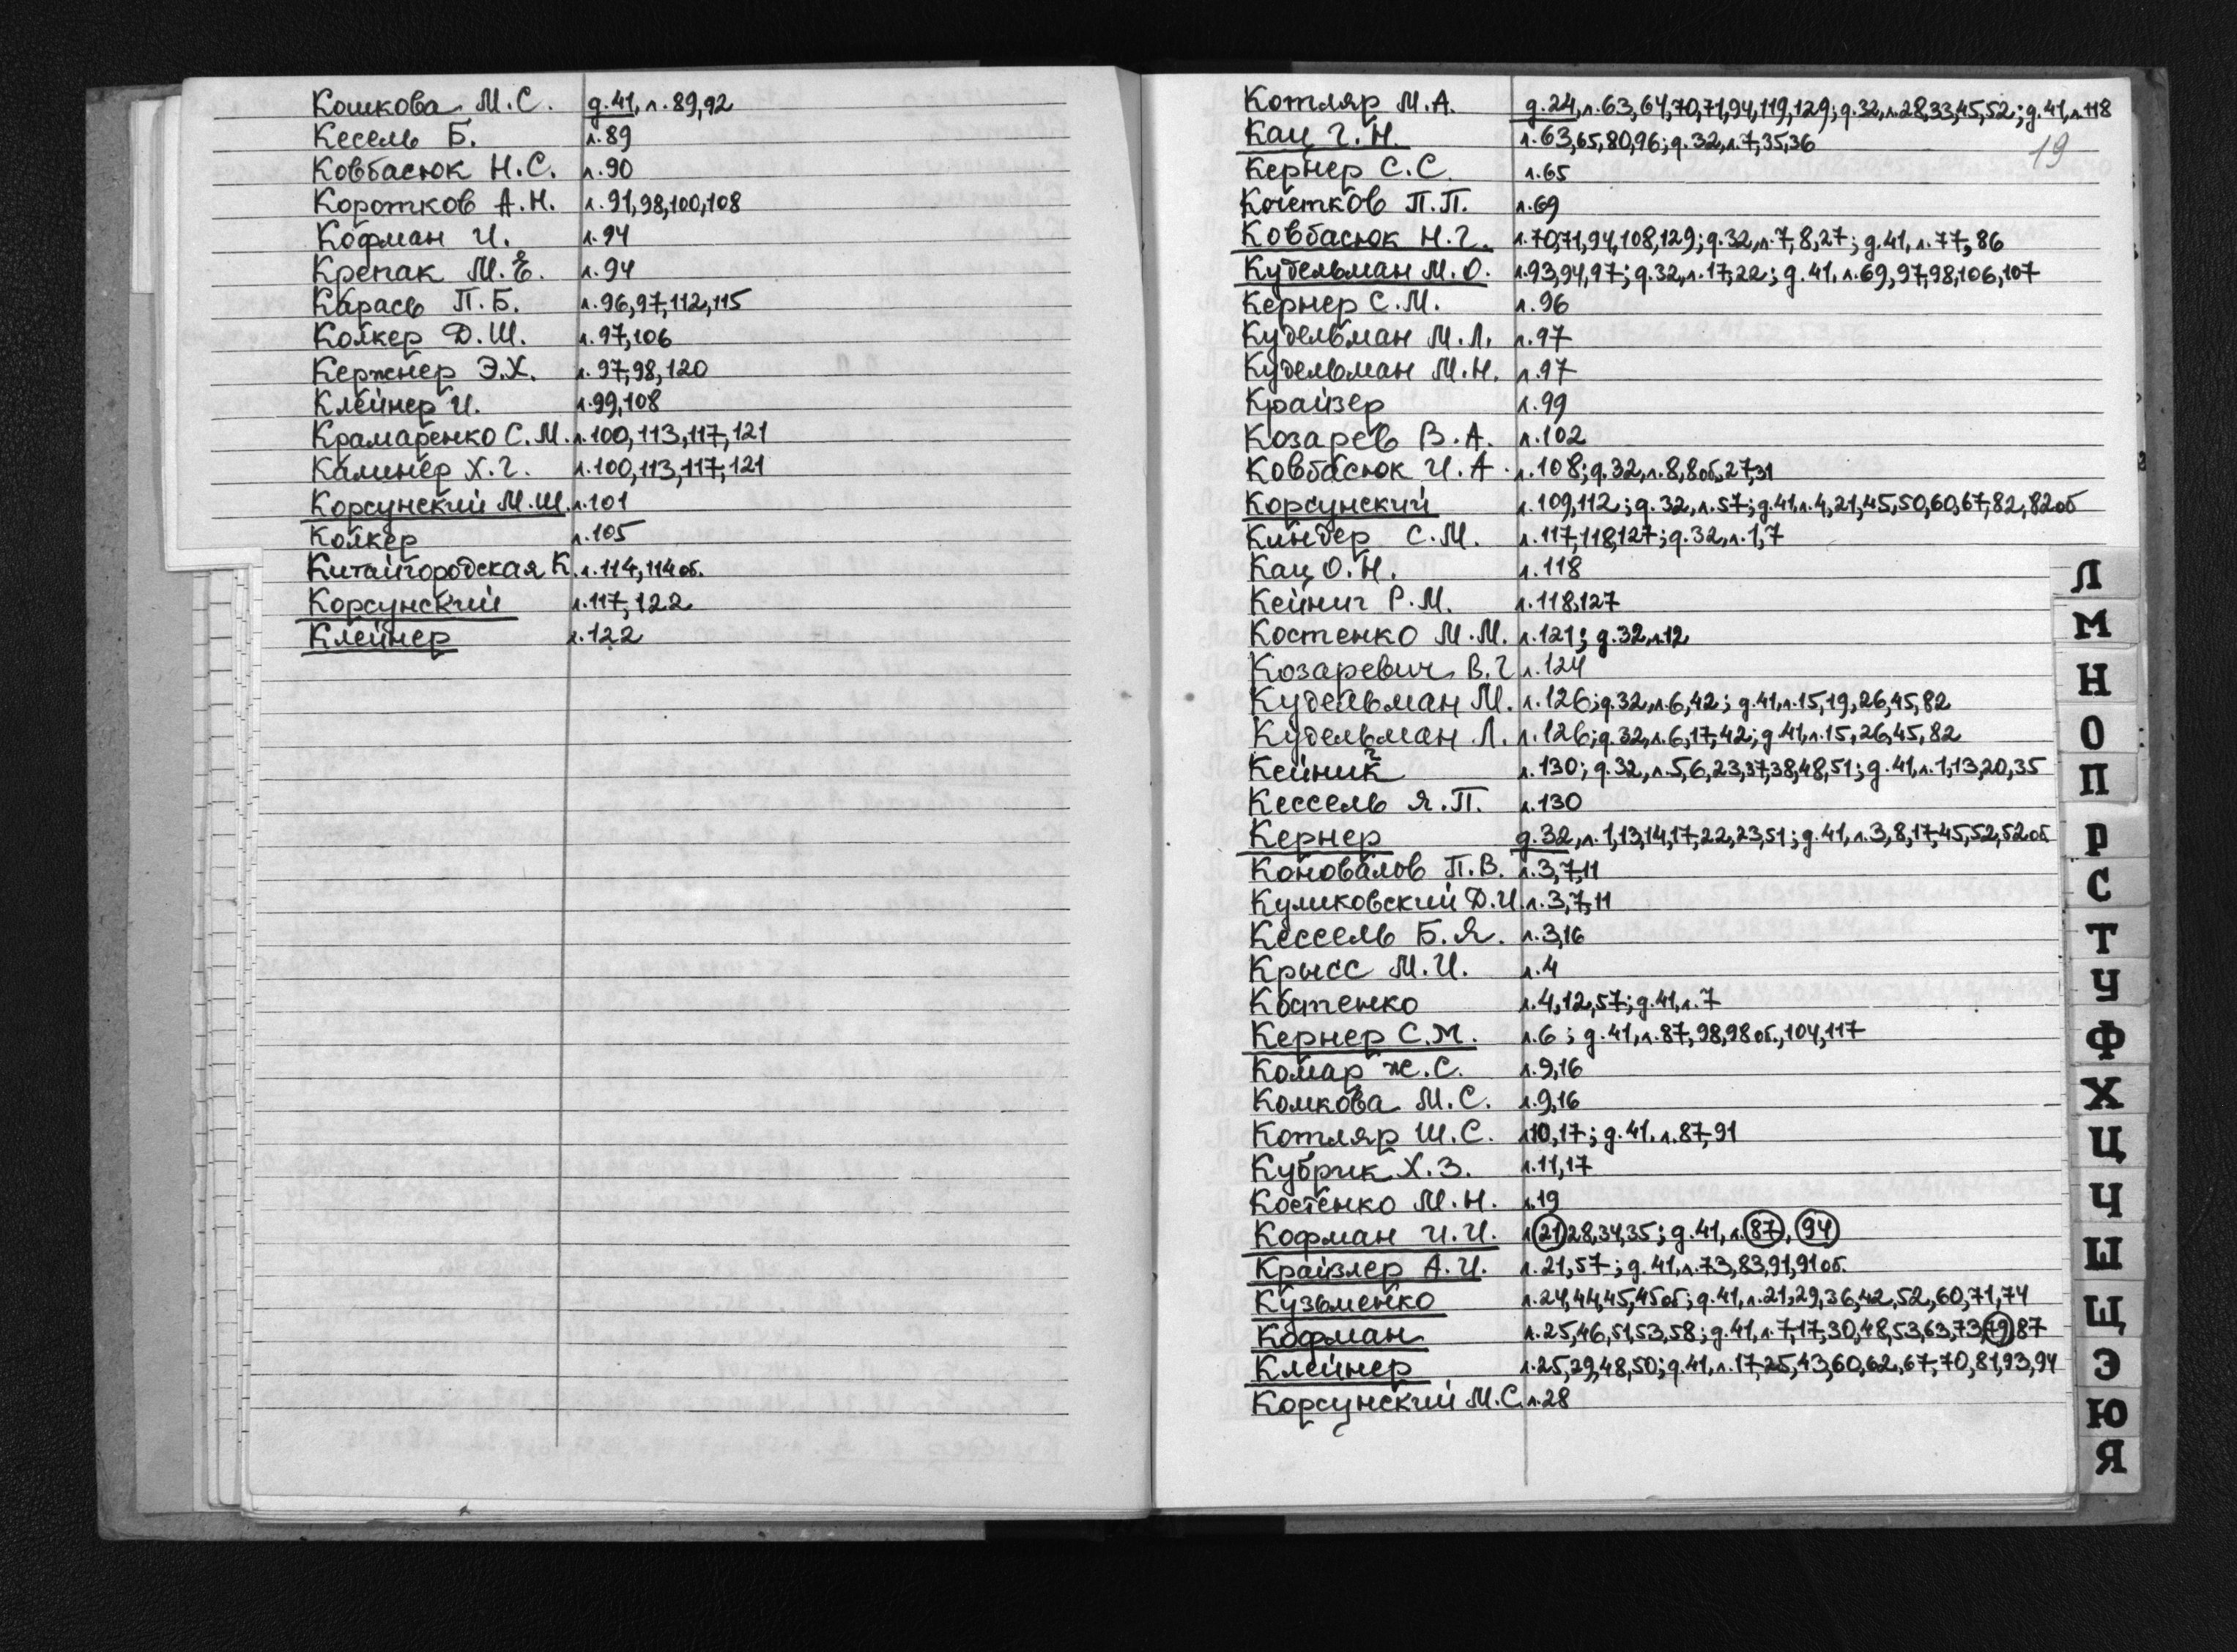 Кошкова М.С. д.41, л.89,92
Кесель Б. л.89
Ковбасюк Н.С. л.90
Коротков А.Н. л.91,98,100,108
Кофман И. л.94
Крепак М. л.94
Карась П.Б. л.96,97,112,115
Колкер Д.Ш. л.97,106
Кержнер Э.Х. л.97,98,120
Клейнер И. л.99,108
Крамаренко С.М. л.100,113,117,121
Калинер Х.Г. л.100,113,117,121
Корсунский М.Ш. л.101
Колкер л.105
Китайгородская К. л.114,114об.
Корсунский л.117,122
Клейнер л.122
Котляр М.А. д.24,л.63,64,70,71,94,119,129; д.32,л.28,33,45,52; д.41,л.118
Кац Г.Н. л.63,65,80,96; д.32,л.7,35,36
19
Кернер С.С. л.65
Кочетков П.П. л.69
Ковбасюк Н.Г. л.70,71,94,108,129; д.32,л.7,8,27; д.41,л.77,86
Кудельман М.О. л.93,94,97; д.32,л.17,22; д.41,л.69,97,98,106,107
Кернер С.М. л.96
Кудельман М.Л. л.97
Кудельман М.Н. л.97
Крайзер л.99
Козарев В.А. л.102
Ковбасюк И.А. л.108; д.32,л.8,8об,27,31
Корсунский л.109,112; д.32,л.57; д.41,л.4,21,45,50,60,67,82,82об
Киндер С.М. л.117,118,127; д.32,л.1,7
Кац О.Н. л.118
Кейнич Р.М. л.118,127
Костенко М.М. л.121; д.32,л.12
Козаревич В.Г. л.124
Кудельман М. л.126; д.32,л.6,42; д.41,л.15,19,26,45,82
Кудельман Л. л.126; д.32,л.6,17,42; д.41,л.15,26,45,82
Кейник л.130; д.32,л.5,6,23,37,38,48,51; д.41,л.1,13,20,35
Кессель Я.П. л.130
Кернер д.32,л.1,13,14,17,22,23,51; д.41,л.3,8,17,45,52,52об
Коновалов П.В. л.3,7,11
Куликовский Д.И. л.3,7,11
Кессель Б.Я. л.3,16
Крысс М.И. л.4
Костенко л.4,12,57; д.41,л.7
Кернер С.М. л.6; д.41,л.87,98,98об.,104,117
Комар Ж.С. л.9,16
Комкова М.С. л.9,16
Котляр Ш.С. л.10,17; д.41,л.87,91
Кубрик Х.З. л.11,17
Костенко М.Н. л.19
Кофман И.И. л.21,28,34,35; д.41,л.87,94
Крайзлер А.И. л.21,57; д.41,л.73,83,91,91об.
Кузьменко л.24,44,45,45об; д.41,л.21,29,36,42,52,60,71,74
Кофман л.25,46,51,53,58; д.41,л.7,17,30,48,53,63,73,79,87
Клейнер л.25,29,48,50; д.41,л.17,25,43,60,62,67,70,81,93,94
Корсунский М.С. л.28
Л
М
Н
О
П
Р
С
Т
У
Ф
Х
Ц
Ч
Ш
Щ
Э
Ю
Я